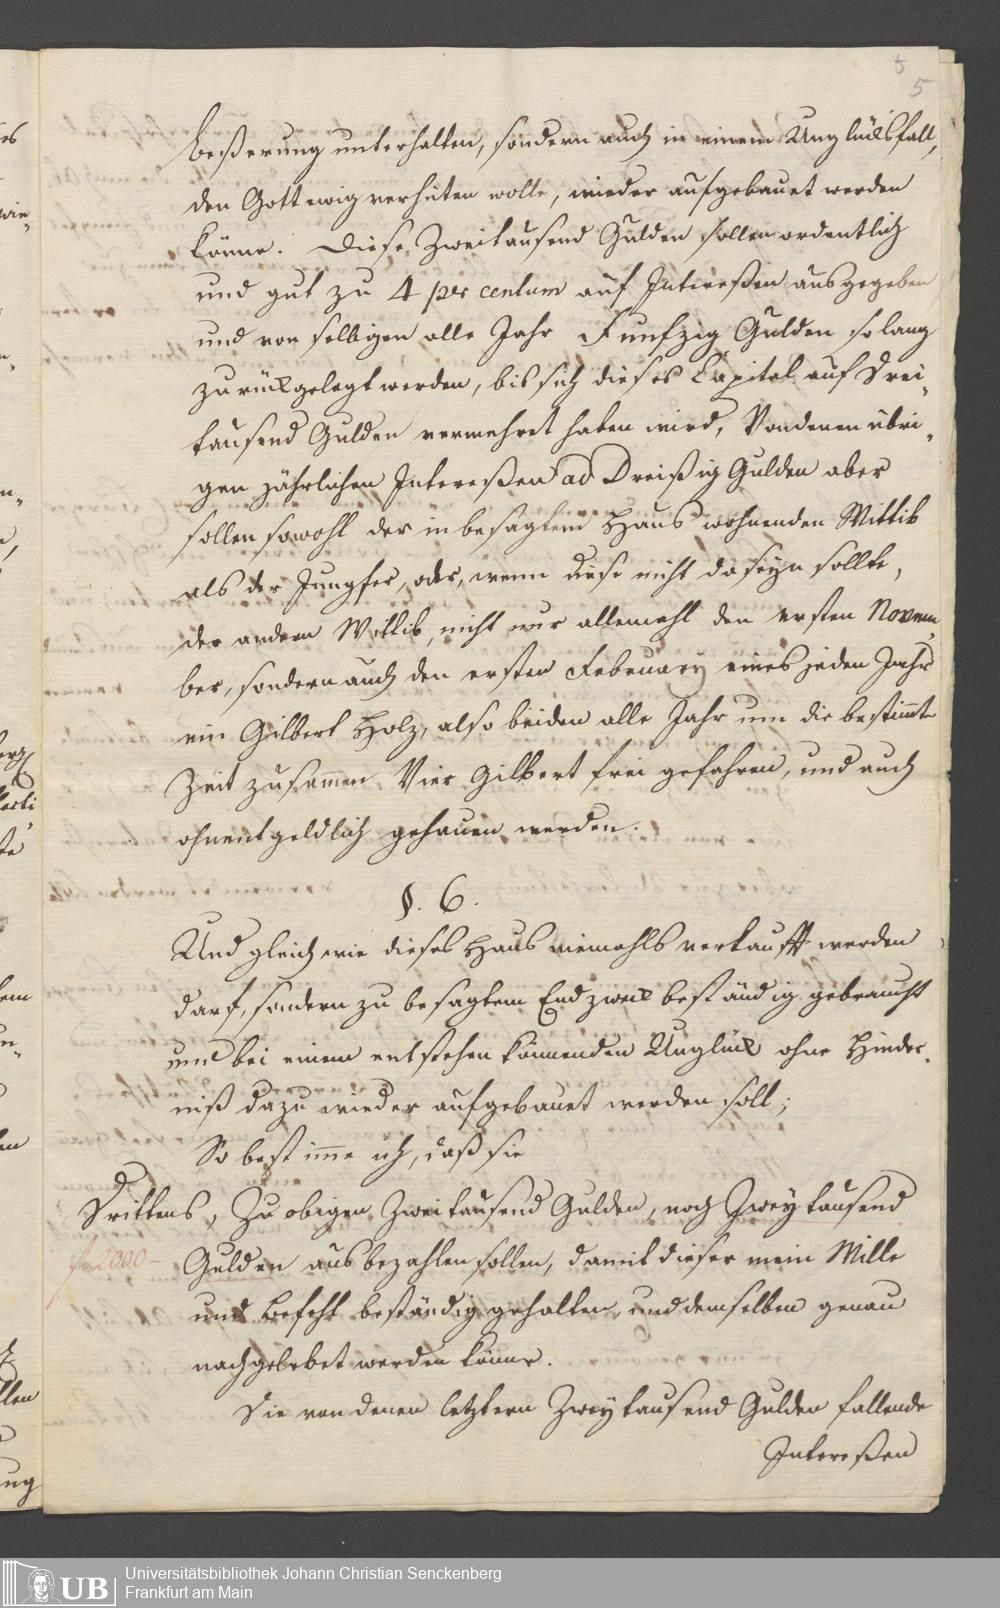 5
5
beßerung unterhalten, sondern auch in einem Unglücksfall,
den Gott ewig verhüten wolle, wieder aufgebauet werden
könne. Diese Zweitausend Gulden sollen ordentlich
und gut zu 4 per centum auf Intereßen ausgegeben
und von selbigen alle Jahr Funfzig Gulden so lang
zurückgelegt werden, bis sich dieses Capital auf Drei-
tausend Gulden vermehret haben wird, Von denen übri-
gen jährlichen Intereßen ad Dreißig Gulden aber
sollen sowohl der in besagtem Haus wohnenden Wittib
als der Jungfer, oder, wenn diese nicht da seyn sollte,
der andern Wittib, nicht nur allemahl den ersten Novem-
ber, sondern auch den ersten February eines jeden Jahrs
ein Gilbert Holz, also beiden alle Jahr um die bestimte
Zeit zusamen Vier Gilbert frei gefahren, und auch
ohnentgeldlich gehauen werden.
§. 6.
Und gleich wie dieses Haus niemahls verkaufft werden
darf, sondern zu besagtem Endzweck beständig gebraucht
und bei einem entstehen könnenden Unglück ohne Hinder-
niß dazu wieder aufgebauet werden soll;
So bestimme ich, daß sie
Drittens, Zu obigen Zweitausend Gulden, noch Zweytausend
f 2000 - Gulden ausbezahlen sollen, damit dieser mein Wille
und Befehl beständig gehalten, und demselben genau
nachgelebet werden könne.
Die von denen letztern Zweytausend Gulden fallende
Intereßen
UB
Universitätsbibliothek Johann Christian Senckenberg
Frankfurt am Main